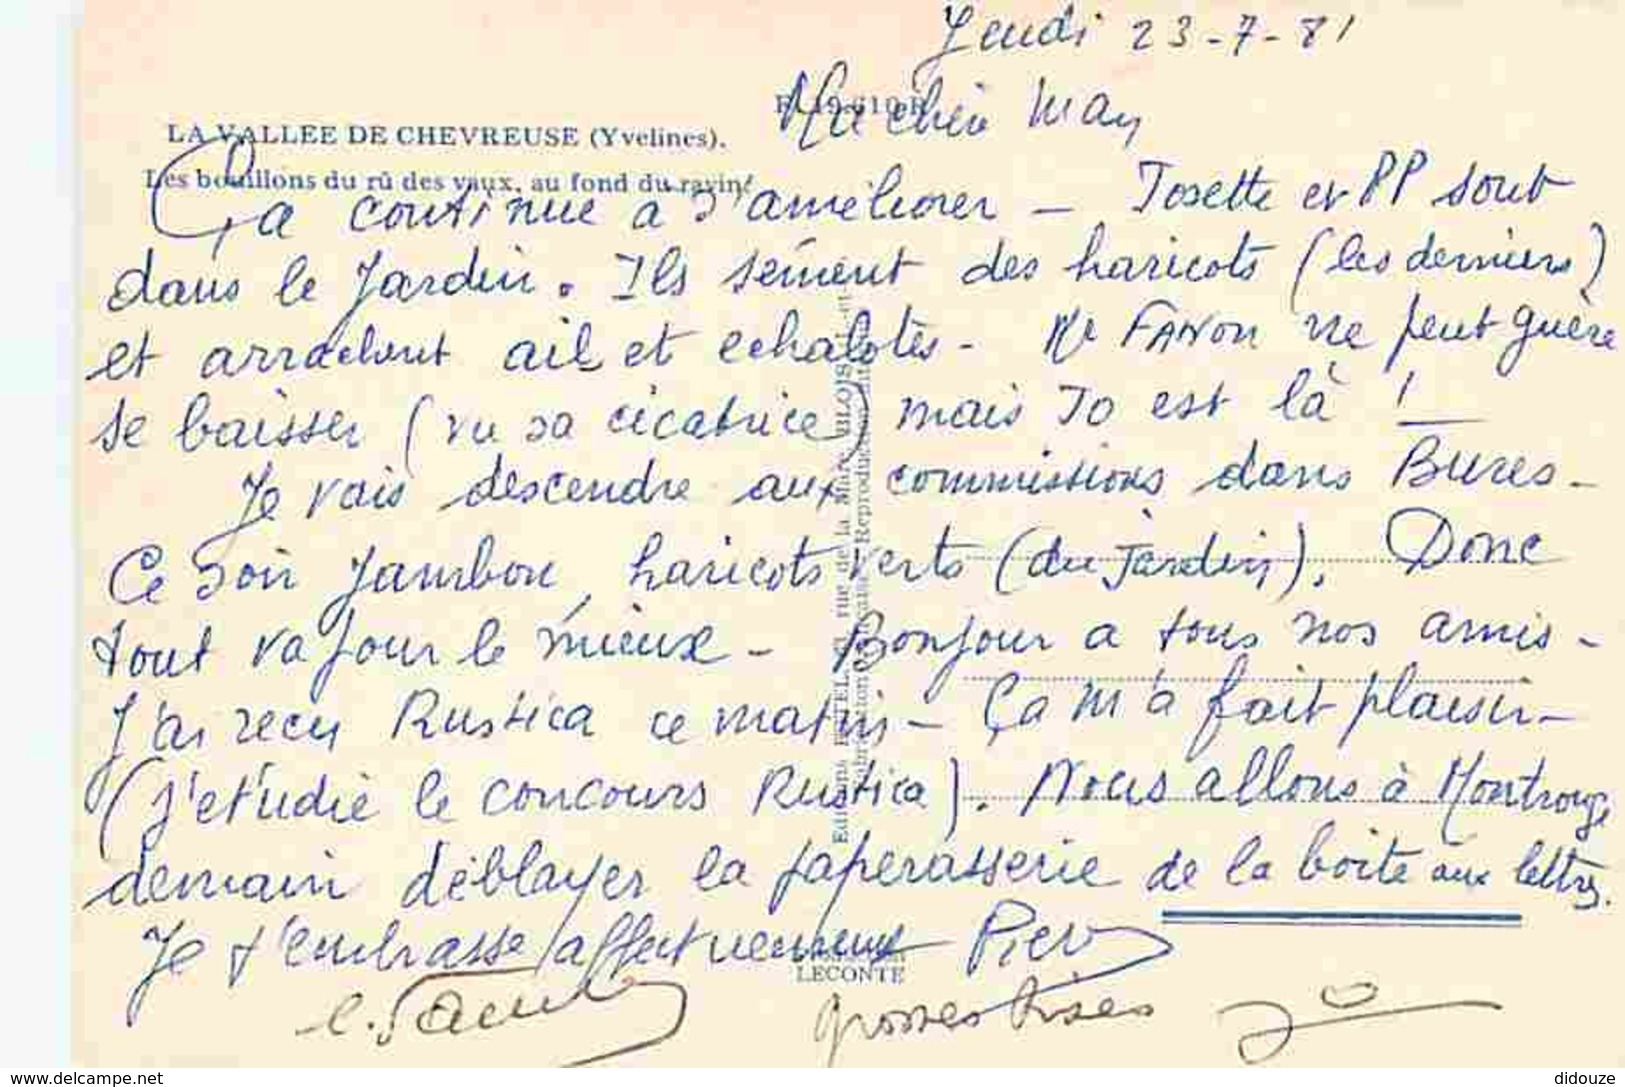 Jeudi 23-7-81
LA VALLEE DE CHEVREUSE (Yvelines).
Ma chère May
Les bouillons du rû des vaux, au fond du raviné
Ça continue à s'améliorer - Josette et PP sont
dans le jardin. Ils sèment des haricots (les derniers)
et arrachent ail et echalotes - Mr FANON ne peut guère
se baisser (vu sa cicatrice) mais JO est là !
Je vais descendre aux commissions dans Bures -
Ce soir jambon, haricots verts (du jardin). Donc
tout va pour le mieux - Bonjour a tous nos amis -
J'ai reçu Rustica ce matin - Ça m'a fait plaisir -
(j'etudie le concours Rustica). Nous allons à Montrouge
demain déblayer la paperasserie de la boite aux lettres.
Je t'embrasse affectueusement Pier
LECONTE
grosses bises Jo
rue de la Mare, BLOIS
Reproduction
www.delcampe.net
didouze